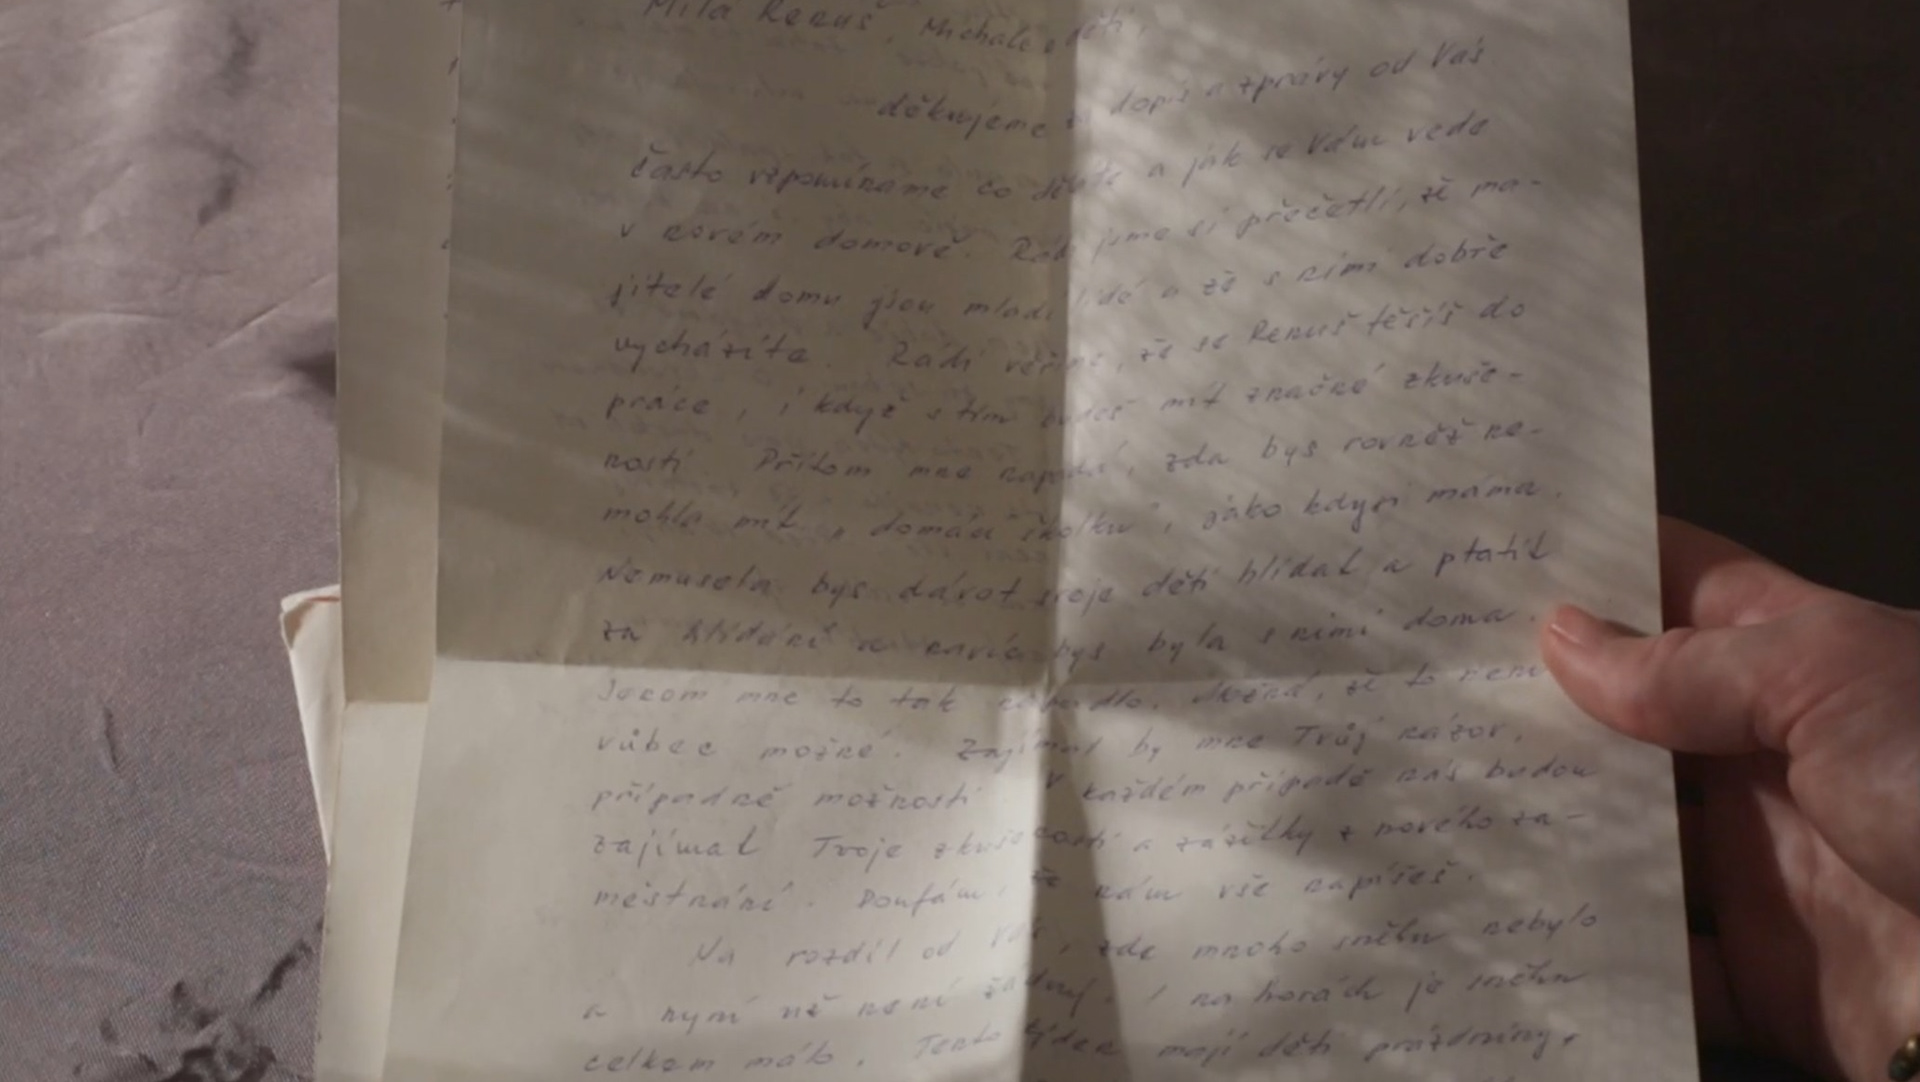 Milá Renuš, Michale a děti,
děkujeme za dopis a zprávy od Vás
často vzpomínáme co děláte a jak se Vám vede
v novém domově. Rádi jsme si přečetli, že ma-
jitelé domu jsou mladí lidé a že s nimi dobře
vycházíte. Rádi věříme, že se Renuš těšíš do
práce, i když s tím budeš mít značné zkuše-
nosti. Přitom mne napadá, zda bys rovněž ne-
mohla mít „domácí školku", jako kdysi máma.
Nemusela bys dávat svoje děti hlídat a platit
za hlídání a navíc bys byla s nimi doma.
Jenom mne to tak napadlo. Možná, že to není
vůbec možné. Zajímal by mne Tvůj názor,
případně možnosti. V každém případě nás budou
zajímat Tvoje zkušenosti a zážitky z nového za-
městnání. Doufám, že nám vše napíšeš.
Na rozdíl od Vás, zde mnoho sněhu nebylo
a nyní už není žádný. I na horách je sněhu
celkem málo. Tento týden mají děti prázdniny,